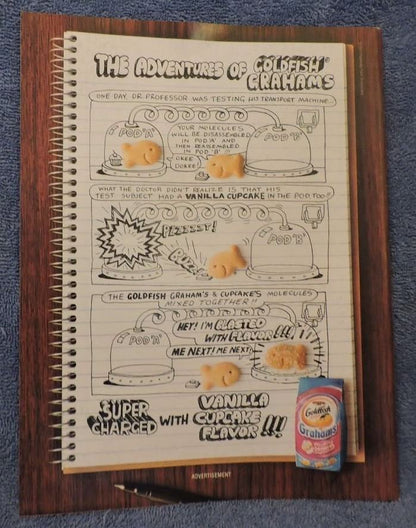 THE ADVENTURES OF GOLDFISH®
GRAHAMS
ONE DAY, DR. PROFESSOR WAS TESTING HIS TRANSPORT MACHINE...
POD "A"
YOUR MOLECULES
WILL BE DISASSEMBLED
IN POD 'A' AND
THEN REASSEMBLED
IN POD 'B'!!!
OKEE
DOKEE!
POD "B"
WHAT THE DOCTOR DIDN'T REALIZE IS THAT HIS
TEST SUBJECT HAD A VANILLA CUPCAKE IN THE POD, TOO!!
BZZZZZT!
BUZZ!
POD "B"
THE GOLDFISH GRAHAM'S & CUPCAKE'S MOLECULES
MIXED TOGETHER!!
POD "A"
HEY! I'M BLASTED
WITH FLAVOR!!!
ME NEXT! ME NEXT!
SUPER
CHARGED
WITH
VANILLA
CUPCAKE
FLAVOR!!!
Goldfish
Grahams
ADVERTISEMENT